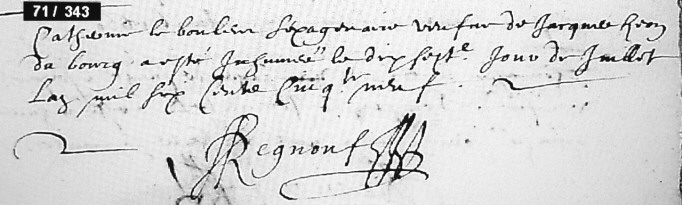 71 / 343
Catherine le boulleu sexagenaire veufue de Jacques
du bourg a esté Inhumée le dix sept.e Jour de Juillet
Lan mil six Cents Cinq.te neuf
Regnouf